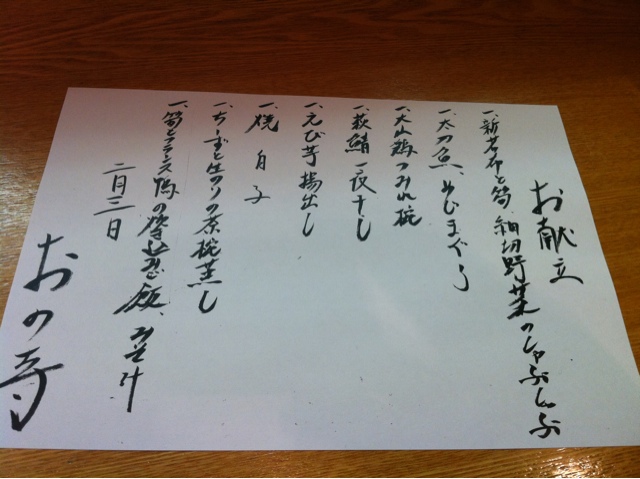 お献立
一、新若布と筍、細切野菜のしゃぶしゃぶ
一、太刀魚、めじまぐろ
一、大山鶏つみれ椀
一、萩鯖一夜干し
一、えび芋揚出し
一、焼白子
一、ちーずと生のりの茶椀蒸し
一、筍とフランス鴨の炊込ご飯、みそ汁
二月三日
おの寺